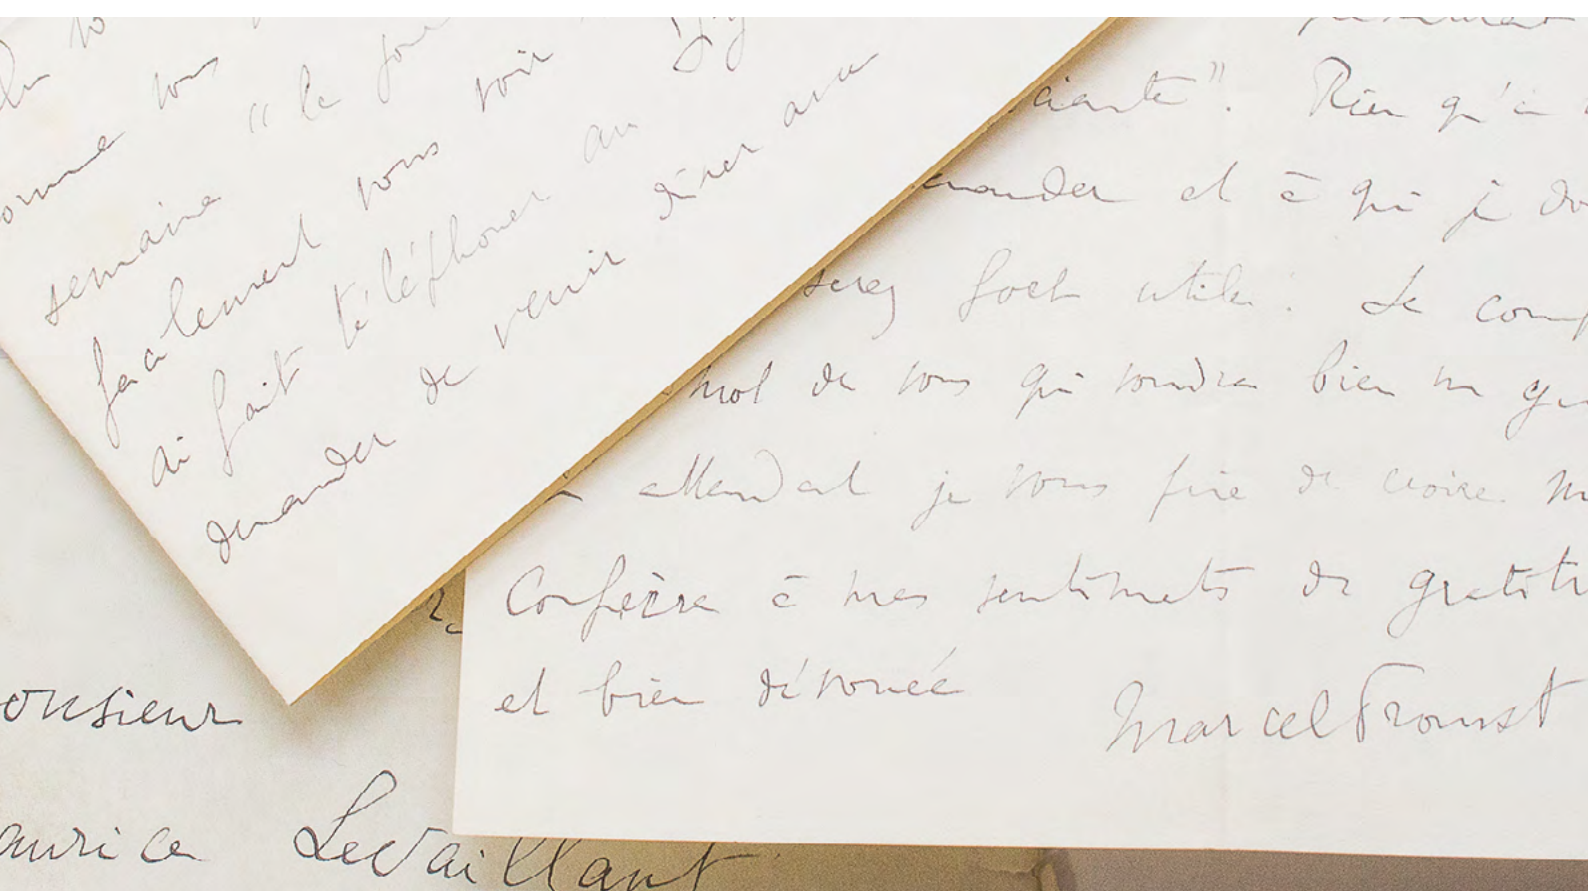 comme vous
semaine "le jour
facilement vous voir
ai fait téléphoner au
demander de venir dîner avec
ciante". Rien qu'à
mander et à qui je
serez fort utile. Je
mot de vous qui voudra bien me
attendant je vous prie de croire
Confrère à mes sentiments de gratitu
et bien dévouée
Marcel Proust
onsieur
aurice Levaillant